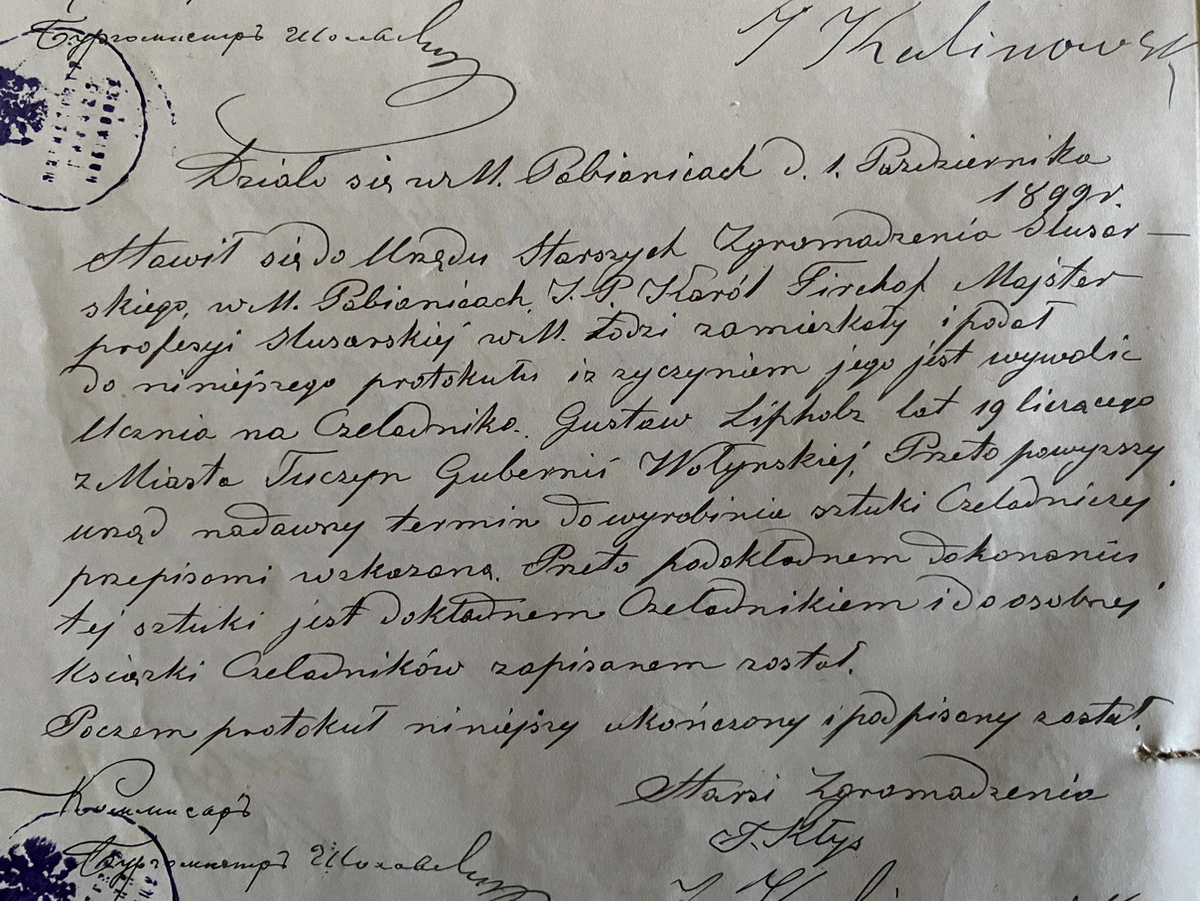 Бургомистръ
J Kalinowsk
Działo się w M. Pabianicach d. 1. Pażdziernika
1899r.
Stawił się do Urzędu Starszych Zgromadzenia Slusar-
skiego, w M. Pabianicach, J. P. Karól Firchof Majster
profesyi slusarskiej w M. Łodzi zamieszkały i podał
do niniejszego protokułu iz zyczyniem jego jest wywolic
Ucznia na Czeladnika. Gustaw Lipholz lat 19 liczącego
z Miasta Tuczyn Gubernii Wołynskiej, Przeto powyzszy
urząd nadawszy termin do wyrobinia sztuki Czeladniczej
przepisami wzkazaną. Przeto podokładnem dokonaniu
tej sztuki jest dokładnem Czeladnikiem i do osobnej
ksiązki Czeladników zapisanem został.
Poczem protokuł niniejszy ukończony i podpisany został.
Starsi Zgromadzenia
Коммисаръ
F. Kłys
Бургомистръ